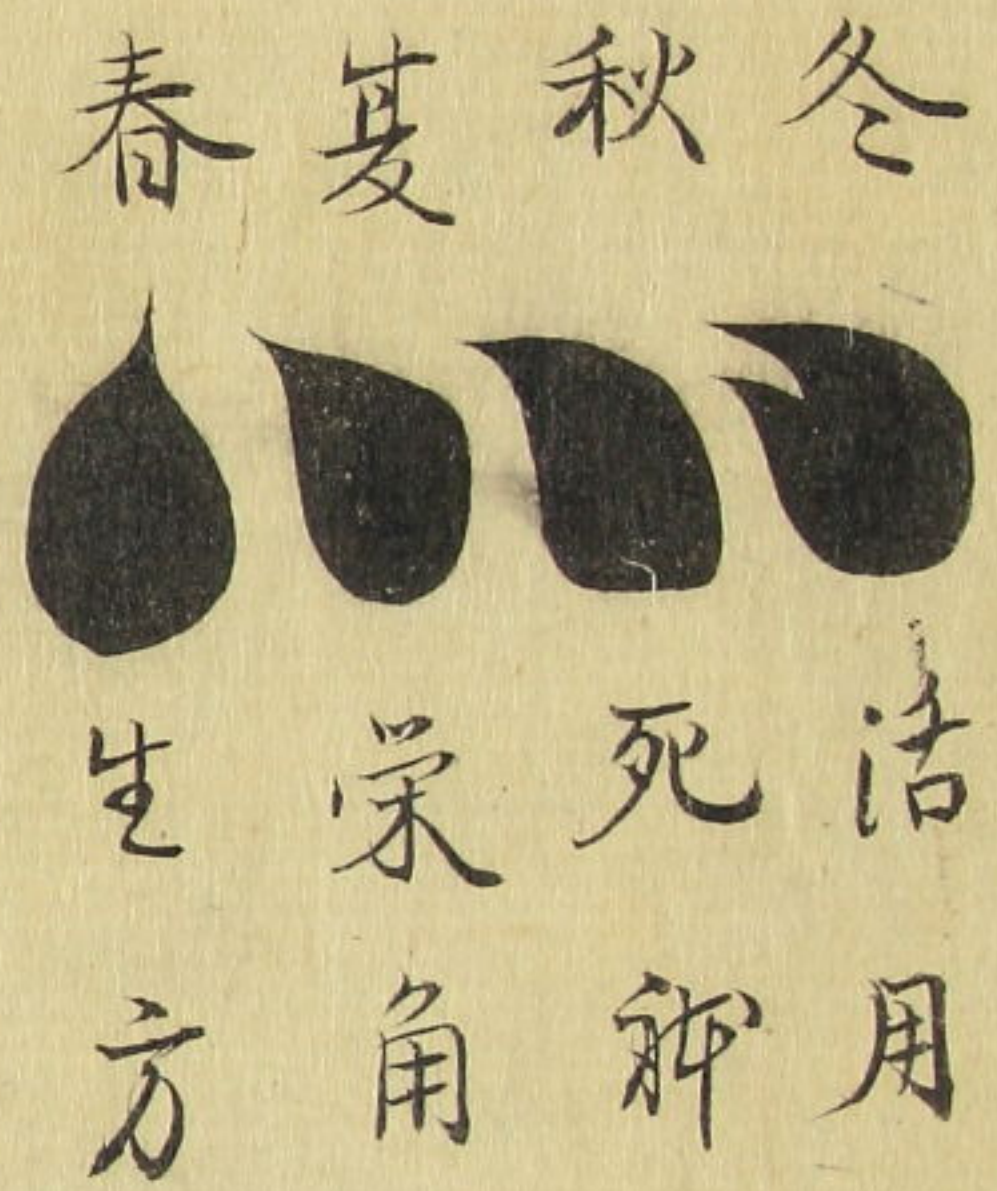 春 夏 秋 冬
生 栄 死 活
方 角 躰 用